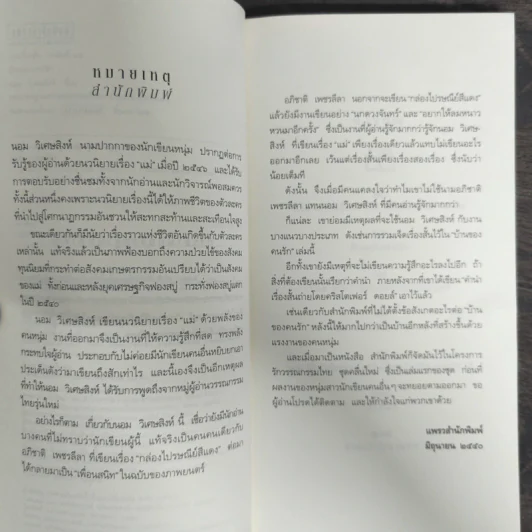 หมายเหตุ
สำนักพิมพ์
นอม วิเศษสิงห์ นามปากกาของนักเขียนหนุ่ม ปรากฏต่อการ
รับรู้ของผู้อ่านด้วยนวนิยายเรื่อง "แม่" เมื่อปี ๒๕๓๖ และได้รับ
การตอบรับอย่างชื่นชมทั้งจากนักอ่านและนักวิจารณ์พอสมควร
ทั้งนี้ส่วนหนึ่งคงเพราะนวนิยายเรื่องนี้ได้ให้ภาพชีวิตของตัวละคร
ที่นำไปสู่โศกนาฏกรรมอันชวนให้สะทกสะท้านและสะเทือนใจสูง
ขณะเดียวกันก็มีนัยว่าเรื่องราวแห่งชีวิตอันเกิดขึ้นกับตัวละคร
เหล่านั้น แท้จริงแล้วเป็นภาพฟ้องบอกถึงความป่วยไข้ของสังคม
ทุนนิยมที่กระทำต่อสังคมเกษตรกรรมอันเปรียบได้ว่าเป็นสังคม
ของแม่ ทั้งก่อนและหลังยุคเศรษฐกิจฟองสบู่ กระทั่งฟองสบู่แตก
ในปี ๒๕๔๐
นอม วิเศษสิงห์ เขียนนวนิยายเรื่อง "แม่" ด้วยพลังของ
คนหนุ่ม งานที่ออกมาจึงเป็นงานที่ให้ความรู้สึกที่สด ทรงพลัง
กระทบใจผู้อ่าน ประกอบกับไม่ค่อยมีนักเขียนคนอื่นหยิบยกเอา
ประเด็นดังว่ามาเขียนถึงสักเท่าไร และนี้เองจึงเป็นอีกเหตุผล
ที่ทำให้นอม วิเศษสิงห์ ได้รับการพูดถึงจากหมู่ผู้อ่านวรรณกรรม
ไทยรุ่นใหม่
อย่างไรก็ตาม เกี่ยวกับนอม วิเศษสิงห์ นี้ เชื่อว่ายังมีนักอ่าน
บางคนที่ไม่ทราบว่านักเขียนผู้นี้ แท้จริงเป็นคนคนเดียวกับ
อภิชาติ เพชรลีลา ที่เขียนเรื่อง "กล่องไปรษณีย์สีแดง" ต่อมา
ได้กลายมาเป็น "เพื่อนสนิท" ในฉบับของภาพยนตร์
อภิชาติ เพชรลีลา นอกจากจะเขียน "กล่องไปรษณีย์สีแดง"
แล้วยังมีงานเขียนอย่าง "นกดวงจันทร์" และ "อยากให้ลมหนาว
หวนมาอีกครั้ง" ซึ่งเป็นงานที่ผู้อ่านรู้จักมากกว่ารู้จักนอม วิเศษ-
สิงห์ ที่เขียนเรื่อง "แม่" เพียงเรื่องเดียวแล้วแทบไม่เขียนอะไร
ออกมาอีกเลย เว้นแต่เรื่องสั้นเพียงเรื่องสองเรื่อง ซึ่งนับว่า
น้อยเต็มที
ดังนั้น จึงเมื่อมีคนแคลงใจว่าทำไมเขาไม่ใช้นามอภิชาติ
เพชรลีลา แทนนอม วิเศษสิงห์ ที่มีคนอ่านรู้จักมากกว่า
ก็แน่ละ เขาย่อมมีเหตุผลที่จะใช้นอม วิเศษสิงห์ กับงาน
บางแนวบางประเภท ดังเช่นการรวมเจ็ดเรื่องสั้นไว้ใน "บ้านของ
คนรัก" เล่มนี้
อีกทั้งเขายังมีเหตุที่จะไม่เขียนความรู้สึกอะไรลงไปอีก ถ้า
สิ่งที่ต้องเขียนนั้นเรียกว่าคำนำ ภายหลังจากที่เขาได้เขียน "คำนำ
เรื่องสั้นถ่ายโดยคริสโตเฟอร์ ดอยล์" เอาไว้แล้ว
เช่นเดียวกับสำนักพิมพ์ที่ไม่ได้ตั้งข้อสังเกตอะไรต่อ "บ้าน
ของคนรัก" หลังนี้ให้มากไปกว่าเป็นบ้านอีกหลังที่สร้างขึ้นด้วย
แรงงานของคนหนุ่ม
และเมื่อมาเป็นหนังสือ สำนักพิมพ์ก็จัดมันไว้ในโครงการ
รักวรรณกรรมไทย ชุดคลื่นใหม่ ซึ่งเป็นเล่มแรกของชุด ก่อนที่
ผลงานของหนุ่มสาวนักเขียนคนอื่น ๆ จะทยอยตามออกมา ขอ
ผู้อ่านโปรดได้ติดตาม และให้กำลังใจแก่พวกเขาด้วย
แพรวสำนักพิมพ์
มิถุนายน ๒๕๕๐